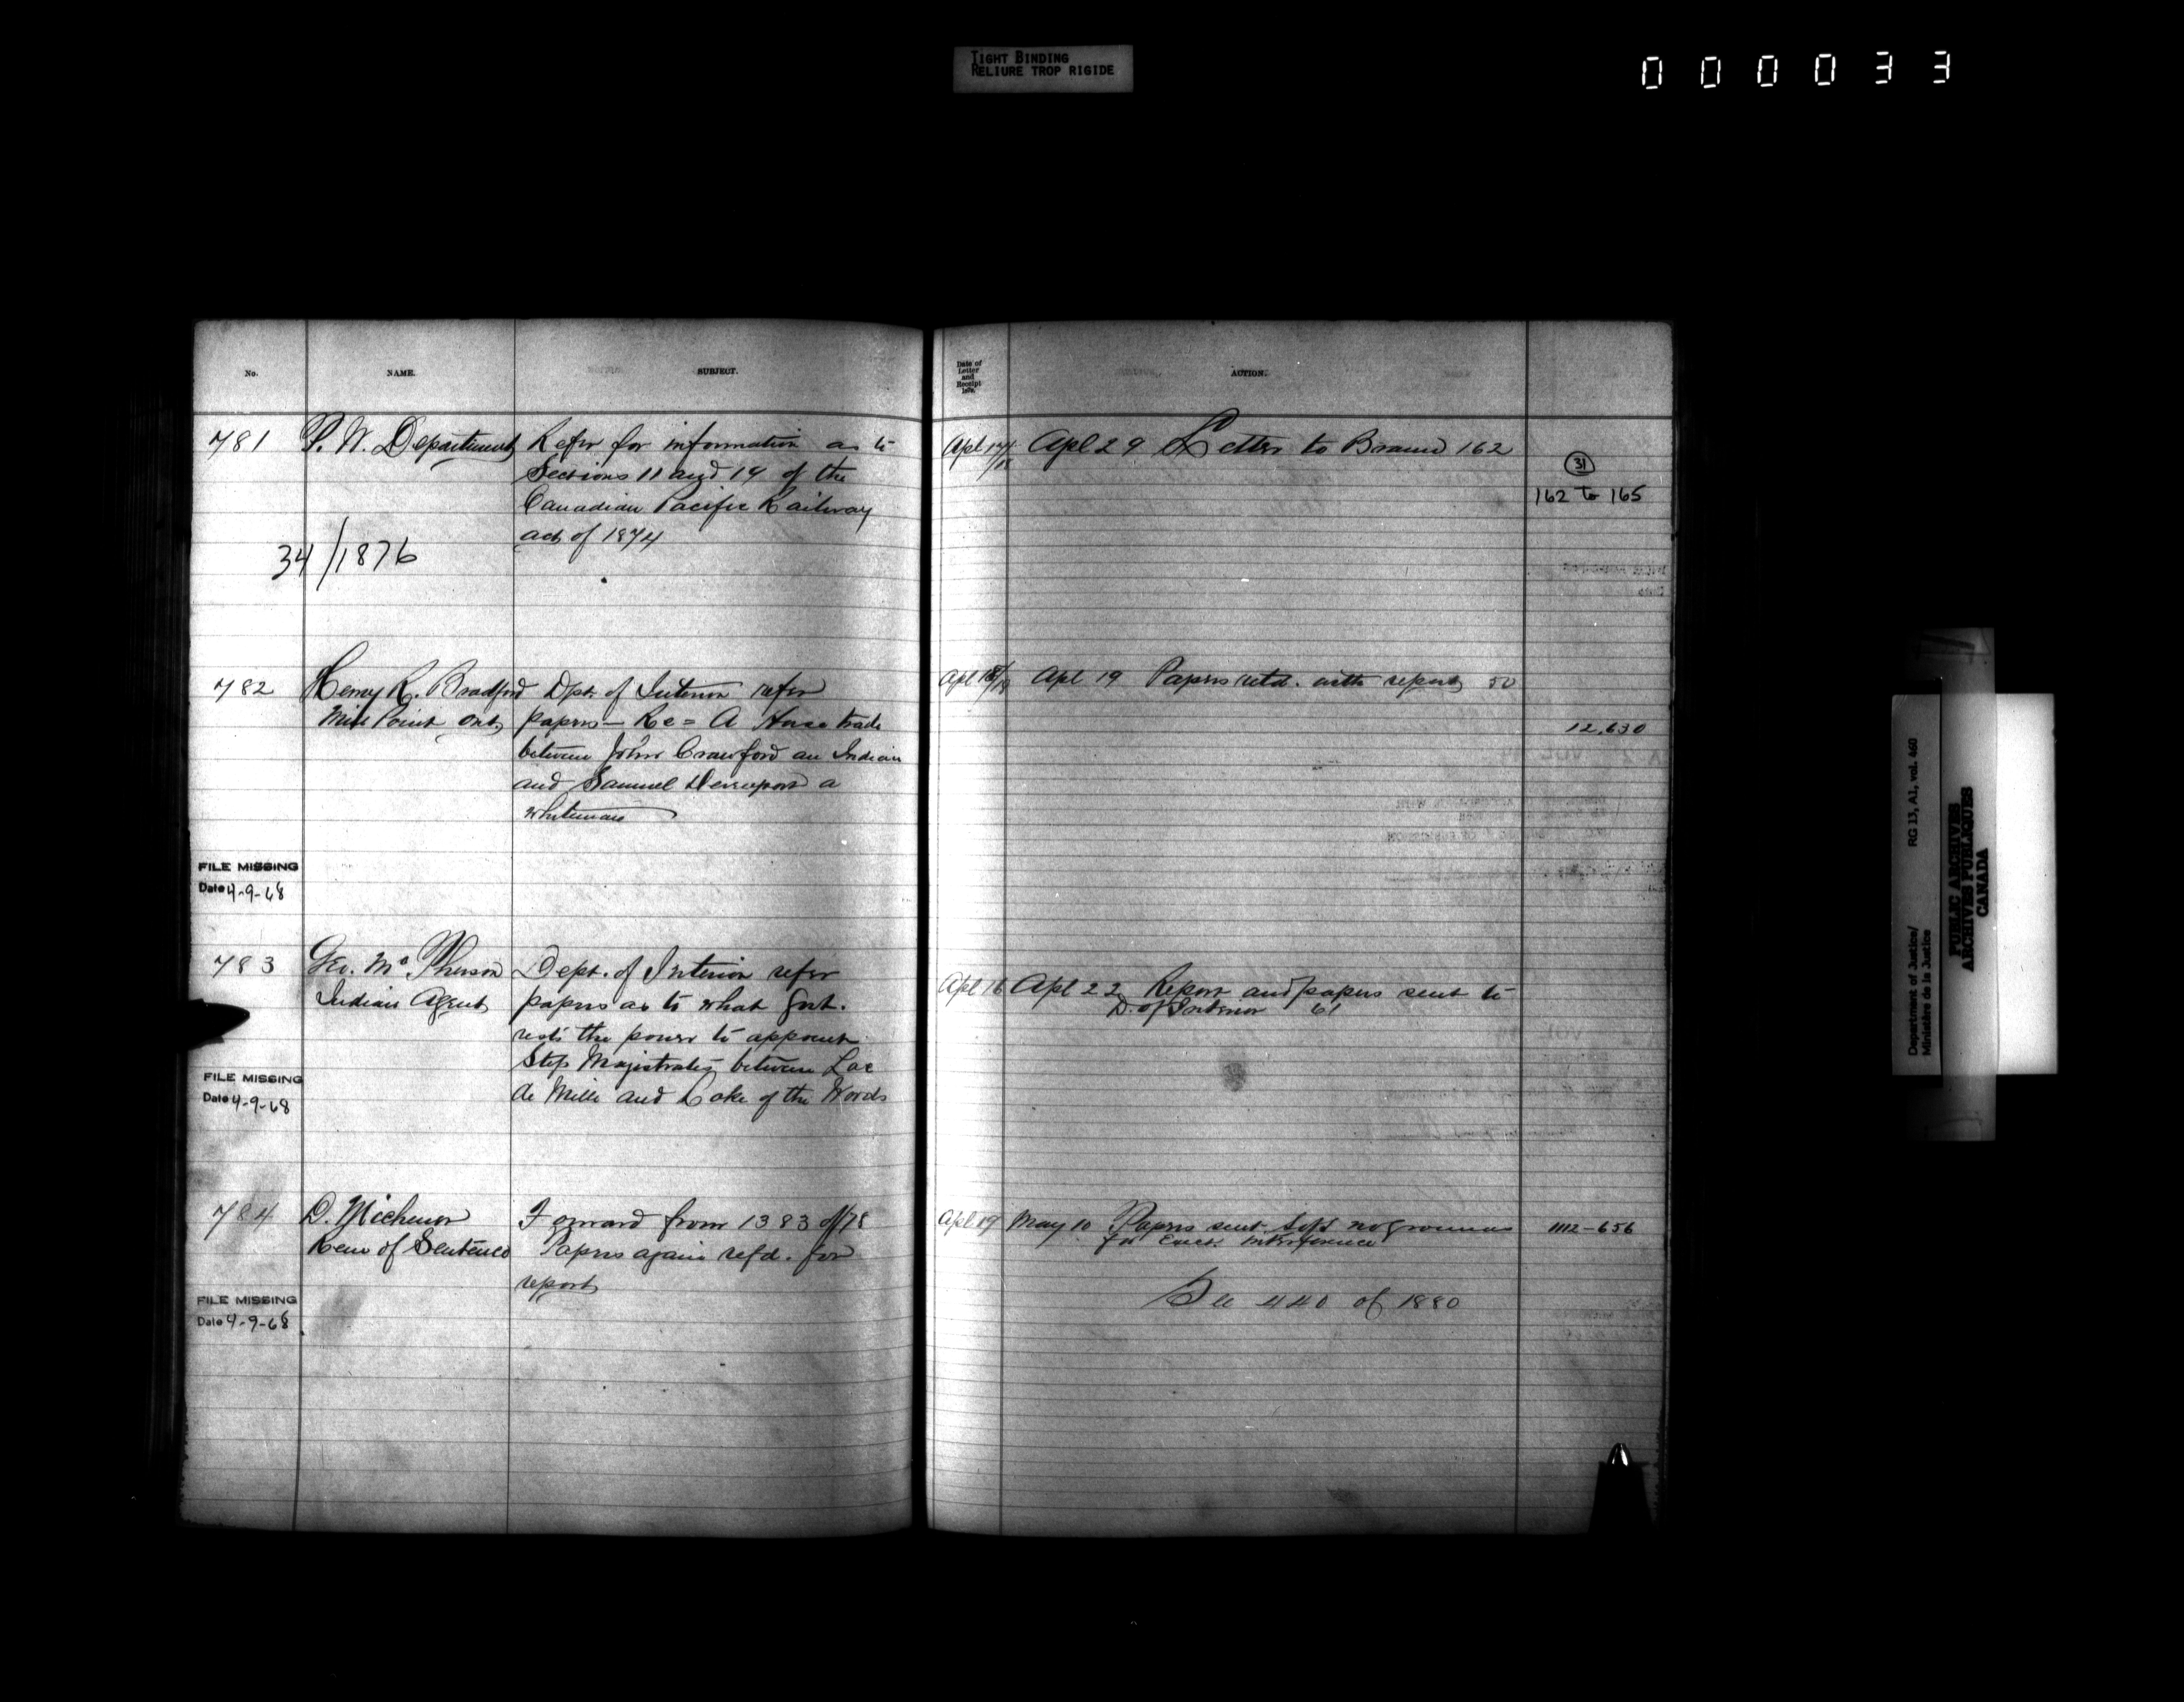 TIGHT BINDING
RELIURE TROP RIGIDE
000033
No.
NAME.
SUBJECT.
781
P. W. Department
Refer for information as to
Sections 11 and 14 of the
Canadian Pacific Railway
act of 1874
34/1876
782
Henry R. Bradford
Mill Point Ont
Dpt. of Interior refer
papers — Re = A Horse trade
between John Crawford an Indian
and Samuel a
whiteman
FILE MISSING
Date 4-9-68
783
Geo. McPherson
Indian Agent
Dept. of Interior refer
papers as to what Govt.
rests the power to appoint
Stip Magistrates between Lac
de Mille and Lake of the Woods
FILE MISSING
Date 4-9-68
784
D. Michener
Rem of Sentence
Forward from 1383 of/78
Papers again refd. for
report
FILE MISSING
Date 4-9-68
Date of
Letter
and
Receipt
ACTION.
Apl 17/18
Apl 29 Letter to Braun 162
31
162 to 165
Apl 18/19
Apl 19 Papers retd. with report 50
12,630
Apl 16
Apl 22 Report and papers sent to
D. of Interior 61
Apl 19
May 10 Papers sent no grounds
for Exec. interference
1112-656
See 440 of 1880
Department of Justice/
Ministère de la Justice
RG 13, A1, vol. 460
PUBLIC ARCHIVES
ARCHIVES PUBLIQUES
CANADA